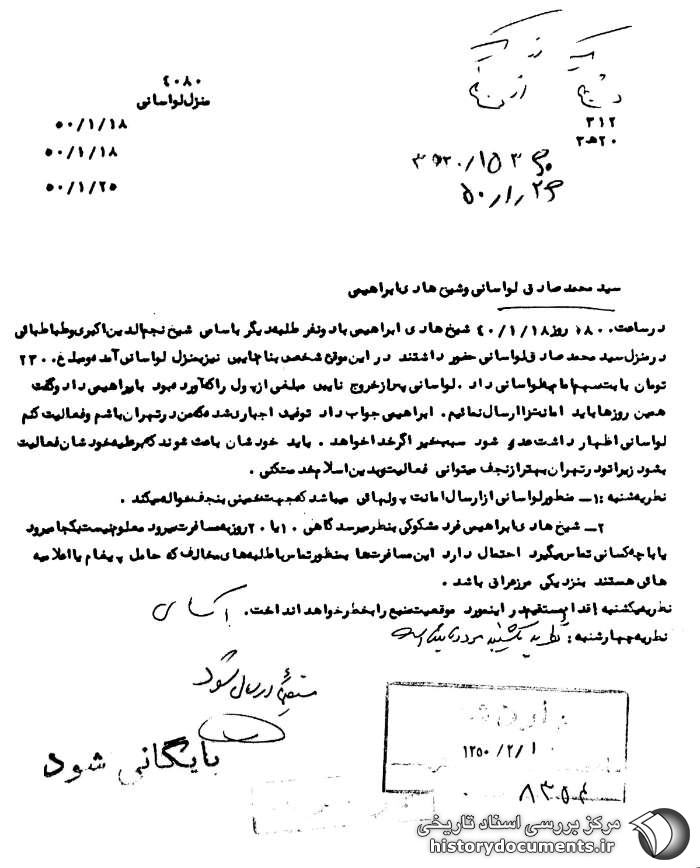 ۳۱۲
۲۰ﻫ۳
۴۰۸۰
منزل لواسانی
۵۰/۱/۱۸
۵۰/۱/۱۸
۵۰/۱/۲۵
سید محمد صادق لواسانی و شیخ هادی ابراهیمی
در ساعت ۰۸۰ روز ۴۰/۱/۱۸ شیخ هادی ابراهیمی با دونفر طلبه دیگر باسامی شیخ نجم الدین اکبری وطباطبائی
در منزل سید محمد صادق لواسانی حضور داشتند در این موقع شخصی بنام نایین نیز بمنزل لواسانی آمد و مبلغ ۲۳۰۰
تومان بابت سهم امام به لواسانی داد . لواسانی پس از خروج نایین مبلغی از پول را که آورده بود بابراهیمی داد وگفت
همین روزها باید امانت را ارسال نمائیم . ابراهیمی جواب داد توفیق اجباری شده که من در تهران باشم وفعالیت کنم
لواسانی اظهار داشت عدو شود سبب خیر اگر خدا خواهد . باید خودشان باعث شوند که بر علیه خودشان فعالیت
بشود زیرا تو در تهران بهتر از نجف میتوانی فعالیت و بدین اسلام خدمت کنی .
نظریه شنبه : ۱ـ منظور لواسانی از ارسال امانت پولهائی میباشد که جهت خمینی بنجف حواله میکند .
۲ـ شیخ هادی ابراهیمی فرد مشکوکی بنظر میرسد گاهی ۱۰ یا ۲۰ روز به مسافرت میرود معلوم نیست بکجا میرود
یا با چه کسانی تماس میگیرد احتمال دارد این مسافرت ها بمنظور تماس با طلبه های مخالف که حامل پیغام یا اعلامیه
هائی هستند بنزدیکی مرز عراق باشد .
نظریه یکشنبه : اقدام مستقیم در اینمورد موقعیت منبع را بخطر خواهد انداخت .
نظریه چهارشنبه : نظریه یکشنبه مورد تایید است
ارسال شود
بایگانی شود
۱۳۵۰/۲/۱
مرکز بررسی اسناد تاریخی
historydocuments.ir